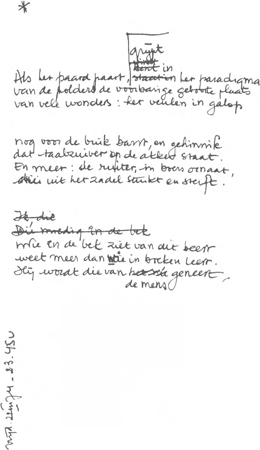 *
grijpt
Als het paard paart, in het paradigma
van de polders de voorbarige geboorteplaats
van vele wonders: het veulen in galop
nog voor de buik barst, en gehinnik
dat taalzuiver op de akker staat.
En meer: de ruiter, in boers ornaat,
die uit het zadel stinkt en sterft.
Ik die
Die moedig in de bek
Wie in de bek ziet van dit beest
weet meer dan wie in boeken leest.
Hij wordt die van geneert,
de mens